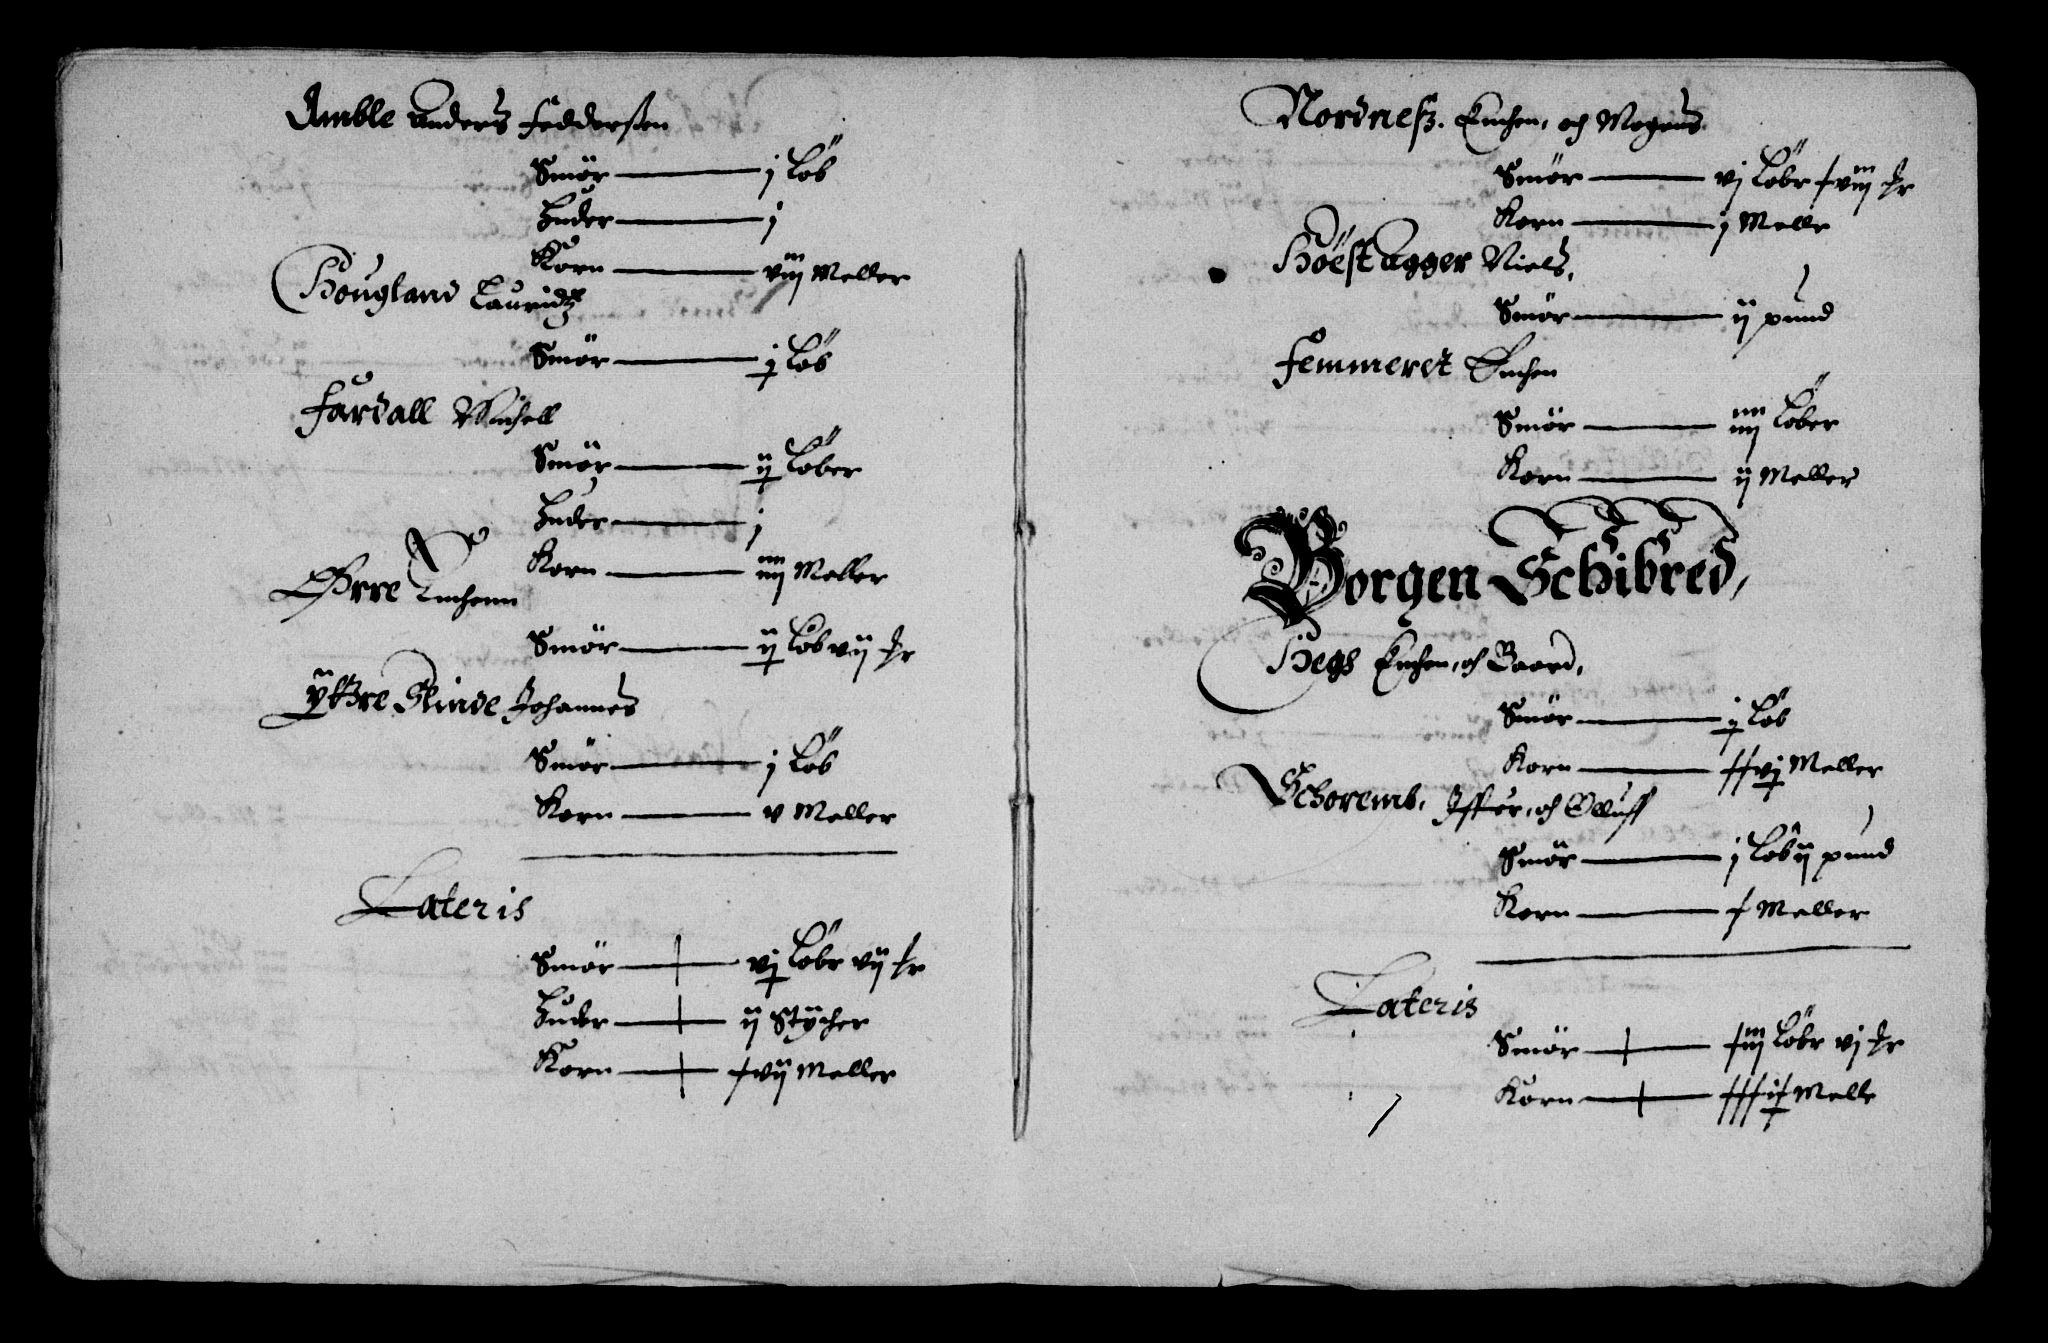 Amble Anders Feddersen
Smör — j Löb
Huder — j
Korn — viij Meller
Hougland Lauridtz
Smör — j Löb
Fardall Michell
Smör — ij Löber
Huder — j
Korn — iiij Meller
Øffre Enchenn
Smör — ij Löb vij 
Ÿttre Slinde Johannes
Smör — j Löb
Korn — v Meller
Lateris
Smör — vj Löbr vij
Huder — ij Stÿcher
Korn — xvij Meller
Nordnesz. Enchen, och Mogens
Smör — vj Löbr xviij
Korn — j Melle
Höest Agger Niels,
Smör — ij pund
Femmeret Enchen
Smör — iiij Löber
Korn — ij Meller
Borgen Schibred,
Hegs Enchen, och Baard,
Smör — j Löb
Korn — xxvj Meller
Schoremb, Iffuer, och Olluff
Smör — j Löb ij pund
Korn — x Meller
Lateris
Smör — xiij Löbr vj
Korn — Melle